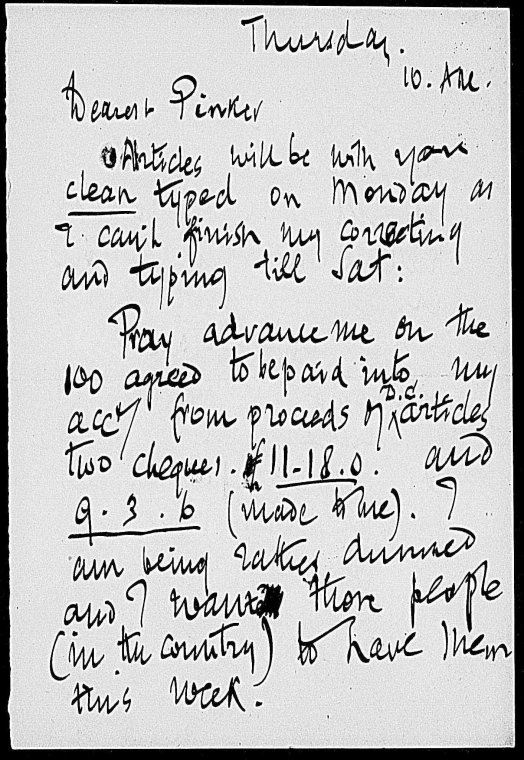 Thursday.
10. AM.
Dearest Pinker
Articles will be with you
clean typed on Monday as
I can't finish my correcting
and typing till Sat:
Pray advance me on the
100 agreed to be paid into my
acct from proceeds of D.C. articles
two cheques. £11-18.0. and
9.3.6 (made to me). I
am being rather dunned
and I want those people
(in the country) to have them
this week.